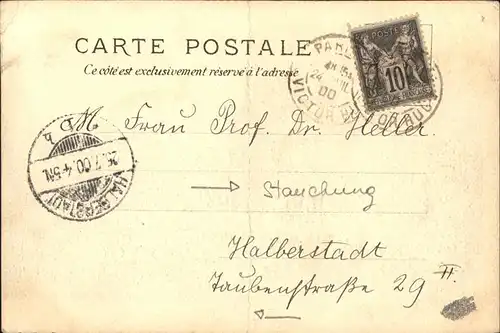 CARTE POSTALE
Ce côté est exclusivement réservé à l'adresse
POSTES
10
PARIS
24
00
VICTOR
25.7.00.4-5N.
HALBERSTADT
Frau Prof. Dr. Heller.
Stauchung
Halberstadt
Taubenstraße 29 II.